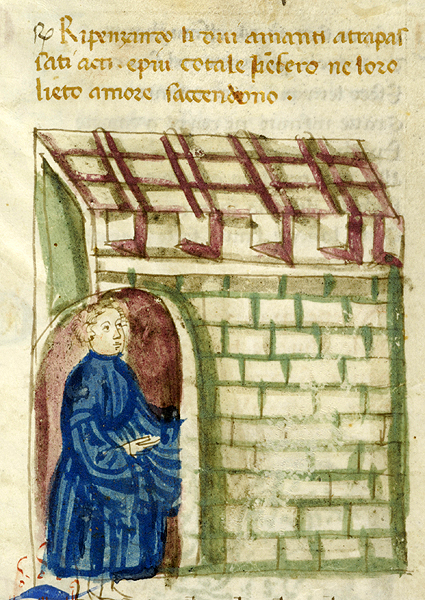 Ripenzanto li dui amanti attapas
sati acti · epiu cotale pensero ne loro
lieto amore saccendono ·